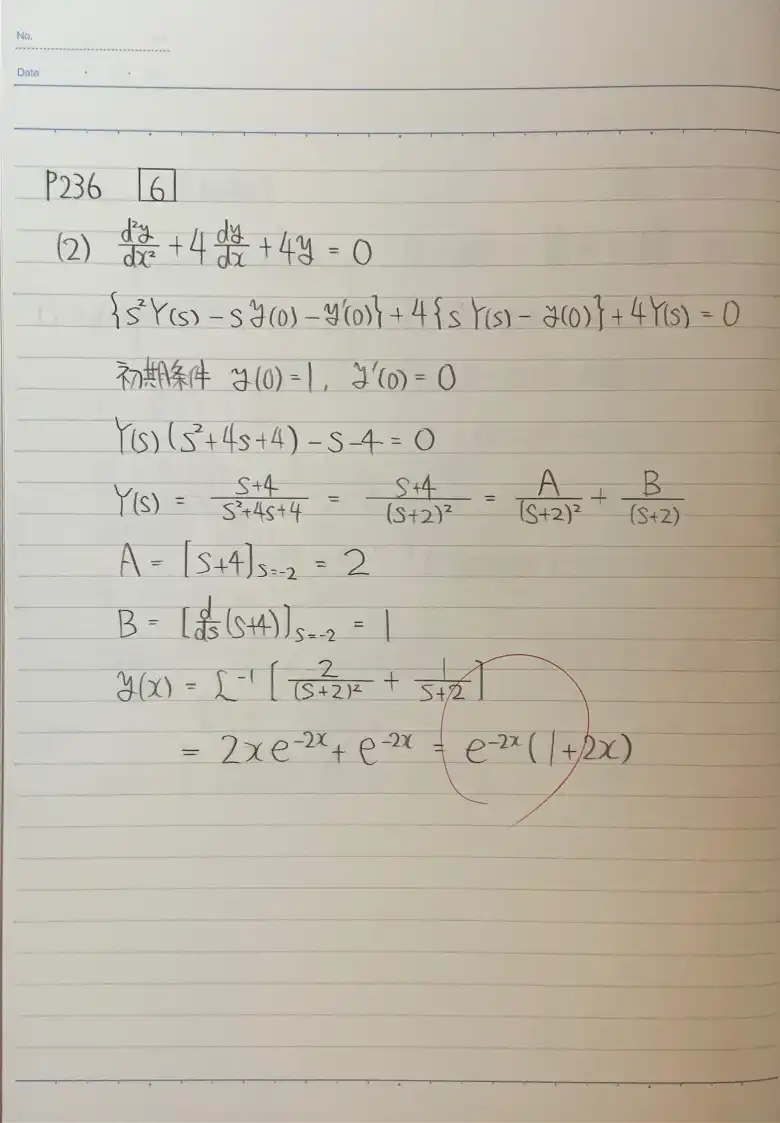 No.
Date
P236 6
(2) d²y/dx² + 4 dy/dx + 4y = 0
{s²Y(s) - sy(0) - y'(0)} + 4{sY(s) - y(0)} + 4Y(s) = 0
初期条件 y(0) = 1, y'(0) = 0
Y(s)(s² + 4s + 4) - s - 4 = 0
Y(s) = s+4/s²+4s+4 = s+4/(s+2)² = A/(s+2)² + B/(s+2)
A = [s+4]s=-2 = 2
B = [d/ds(s+4)]s=-2 = 1
y(x) = L⁻¹[2/(s+2)² + 1/s+2]
= 2xe⁻²ˣ + e⁻²ˣ = e⁻²ˣ(1+2x)